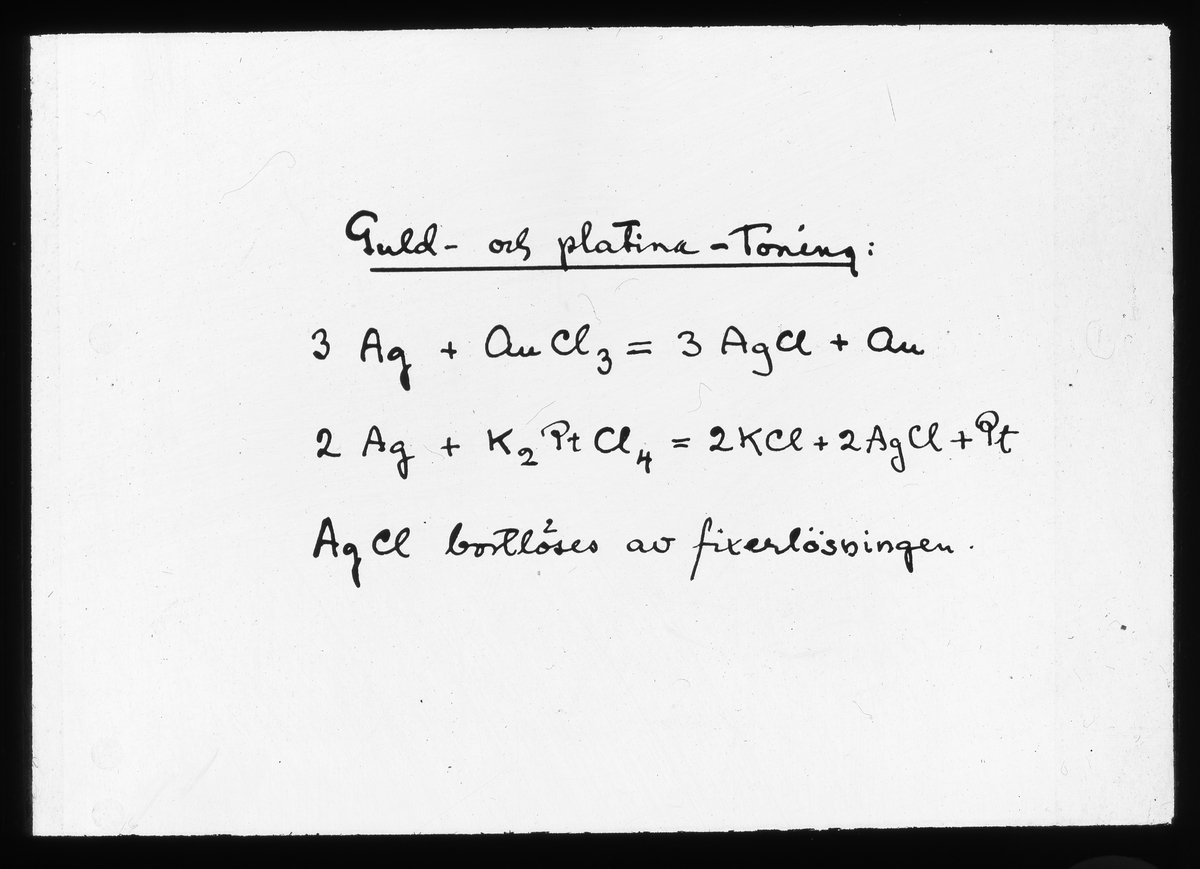 Guld- och platina-Toning:
3 Ag + AuCl₃ = 3 AgCl + Au
2 Ag + K₂PtCl₄ = 2KCl + 2AgCl + Pt
AgCl bortlöses av fixerlösningen.